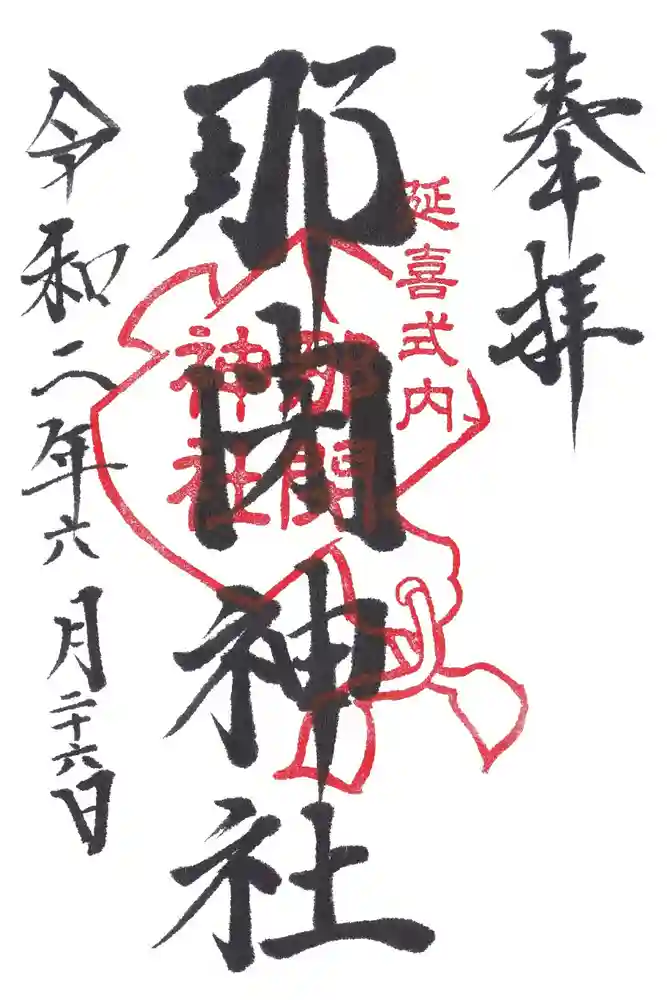 奉拝
延喜式内
那閉神社
那閉
神社
令和二年六月二十六日